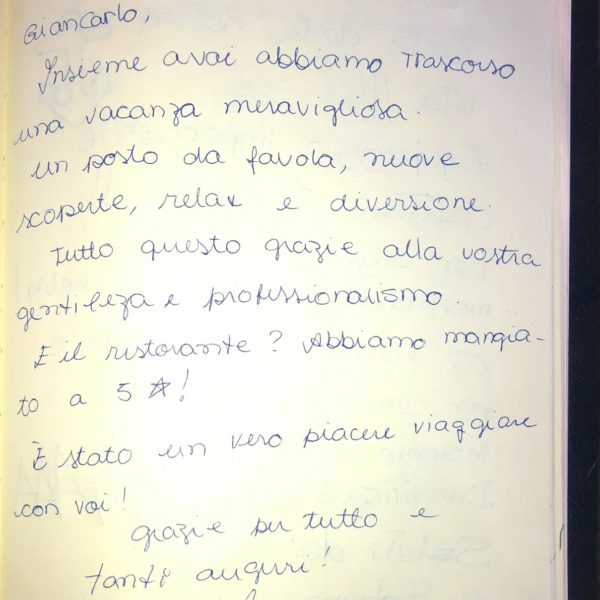 Giancarlo,
Insieme a voi abbiamo trascorso
una vacanza meravigliosa.
un posto da favola, nuove
scoperte, relax e diversione.
Tutto questo grazie alla vostra
gentileza e professionalismo.
E il ristorante? Abbiamo mangia-
to a 5 ☆!
È stato un vero piacere viaggiare
con voi!
grazie per tutto e
tanti auguri!